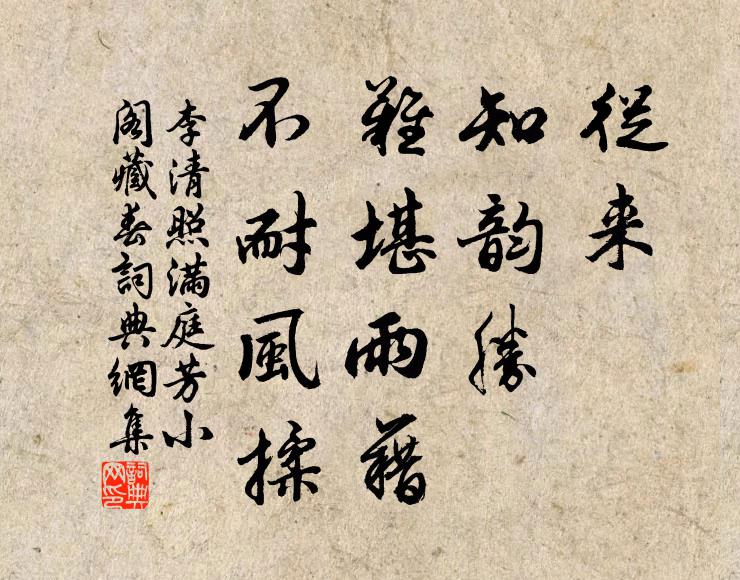 從来
知韵勝
難堪雨藉
不耐風揉
李清照滿庭芳小
閣藏春詞典網集
詞典
网印